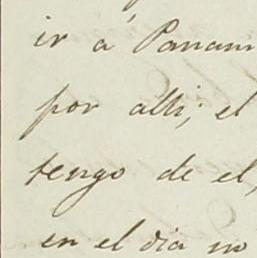 ir á Panam
por alli; el
tengo de el,
en el dia no